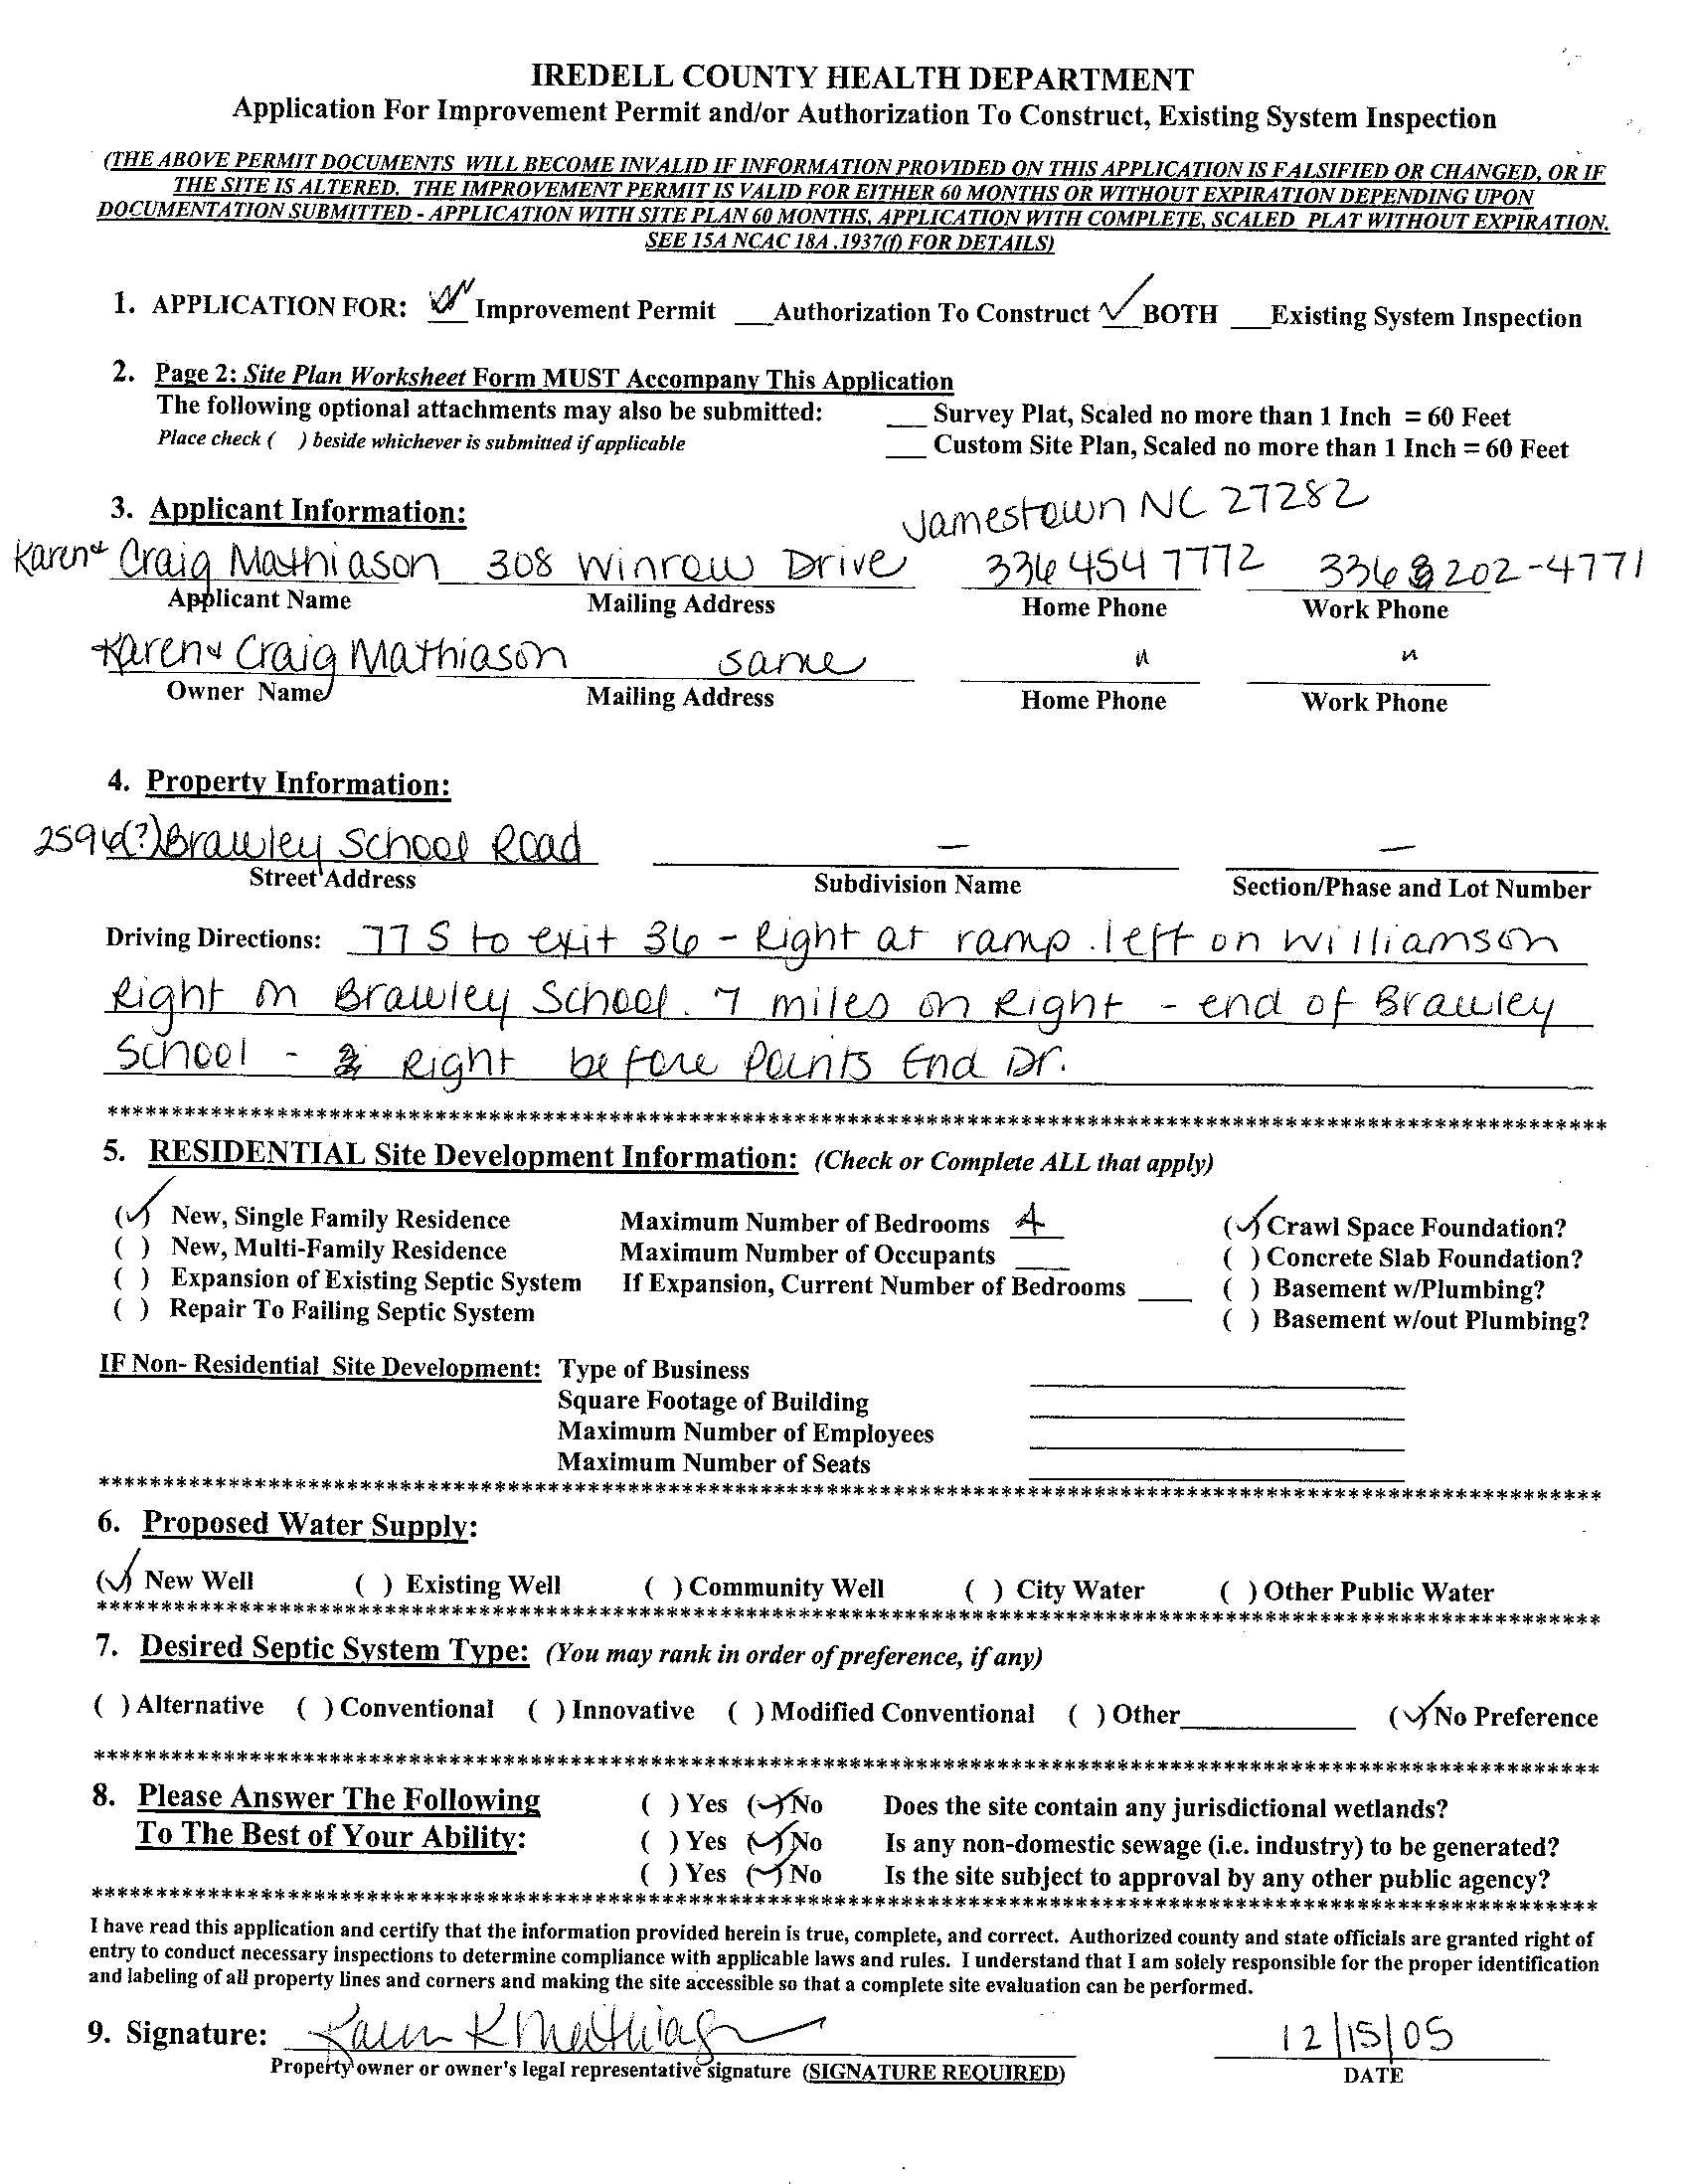 IREDELL COUNTY HEALTH DEPARTMENT
Application For Improvement Permit and/or Authorization To Construct, Existing System Inspection
(THE ABOVE PERMIT DOCUMENTS WILL BECOME INVALID IF INFORMATION PROVIDED ON THIS APPLICATION IS FALSIFIED OR CHANGED, OR IF
THE SITE IS ALTERED. THE IMPROVEMENT PERMIT IS VALID FOR EITHER 60 MONTHS OR WITHOUT EXPIRATION DEPENDING UPON
DOCUMENTATION SUBMITTED - APPLICATION WITH SITE PLAN 60 MONTHS, APPLICATION WITH COMPLETE, SCALED PLAT WITHOUT EXPIRATION.
SEE 15A NCAC 18A .1937(f) FOR DETAILS)
1. APPLICATION FOR: ___ Improvement Permit ___Authorization To Construct ✓BOTH ___Existing System Inspection
2. Page 2: Site Plan Worksheet Form MUST Accompany This Application
The following optional attachments may also be submitted: ___ Survey Plat, Scaled no more than 1 Inch = 60 Feet
Place check ( ) beside whichever is submitted if applicable ___ Custom Site Plan, Scaled no more than 1 Inch = 60 Feet
3. Applicant Information: Jamestown NC 27282
Karen & Craig Mathiason 308 Winrow Drive 336 454 7772 336 202-4771
Applicant Name Mailing Address Home Phone Work Phone
Karen & Craig Mathiason same " "
Owner Name Mailing Address Home Phone Work Phone
4. Property Information:
2596(?) Brawley School Road — —
Street Address Subdivision Name Section/Phase and Lot Number
Driving Directions: 77 S to exit 36 - Right at ramp. left on Williamson
Right on Brawley School. 7 miles on Right - end of Brawley
School - Right before Points End Dr.
****************************************
5. RESIDENTIAL Site Development Information: (Check or Complete ALL that apply)
(✓) New, Single Family Residence Maximum Number of Bedrooms 4 (✓) Crawl Space Foundation?
( ) New, Multi-Family Residence Maximum Number of Occupants ____ ( ) Concrete Slab Foundation?
( ) Expansion of Existing Septic System If Expansion, Current Number of Bedrooms ____ ( ) Basement w/Plumbing?
( ) Repair To Failing Septic System ( ) Basement w/out Plumbing?
IF Non- Residential Site Development: Type of Business
Square Footage of Building
Maximum Number of Employees
Maximum Number of Seats
****************************************
6. Proposed Water Supply:
(✓) New Well ( ) Existing Well ( ) Community Well ( ) City Water ( ) Other Public Water
****************************************
7. Desired Septic System Type: (You may rank in order of preference, if any)
( ) Alternative ( ) Conventional ( ) Innovative ( ) Modified Conventional ( ) Other____________ (✓) No Preference
****************************************
8. Please Answer The Following ( ) Yes (✓) No Does the site contain any jurisdictional wetlands?
To The Best of Your Ability: ( ) Yes (✓) No Is any non-domestic sewage (i.e. industry) to be generated?
( ) Yes (✓) No Is the site subject to approval by any other public agency?
****************************************
I have read this application and certify that the information provided herein is true, complete, and correct. Authorized county and state officials are granted right of
entry to conduct necessary inspections to determine compliance with applicable laws and rules. I understand that I am solely responsible for the proper identification
and labeling of all property lines and corners and making the site accessible so that a complete site evaluation can be performed.
9. Signature: Karen K Mathiason 12/15/05
Property owner or owner's legal representative signature (SIGNATURE REQUIRED) DATE